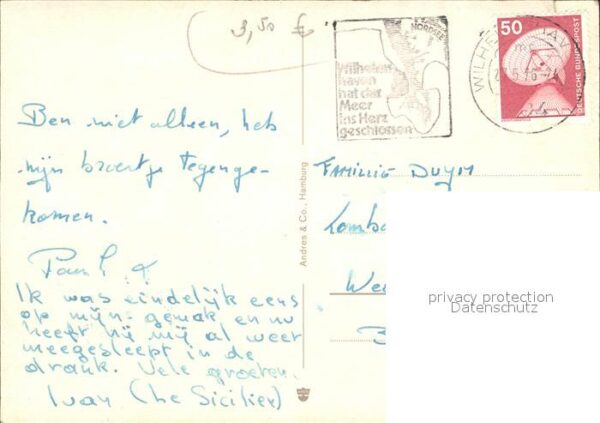 3,50 €
NORDSEE
Wilhelms
haven
hat das
Meer
ins Herz
geschlossen
50
DEUTSCHE BUNDESPOST
Ben niet alleen, heb
mijn broertje tegenge-
komen.
Paul &
Ik was eindelijk eens
op mijn gemak en nu
heeft hij mij al weer
meegesleept in de
drank. Vele groeten.
Ivan (Le Sicilier)
Andres & Co., Hamburg
FAMILIE DUYM
privacy protection
Datenschutz